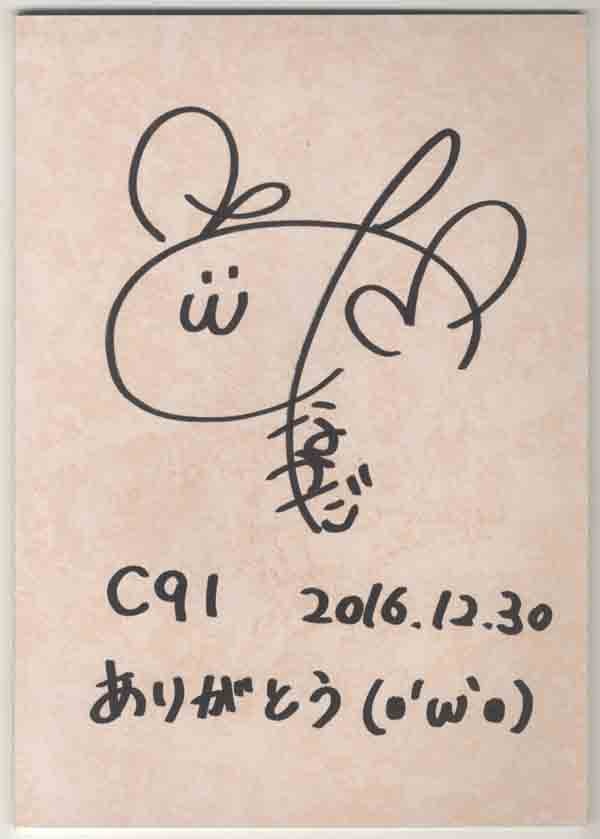 C91 2016.12.30
ありがとう (•'ω`•)